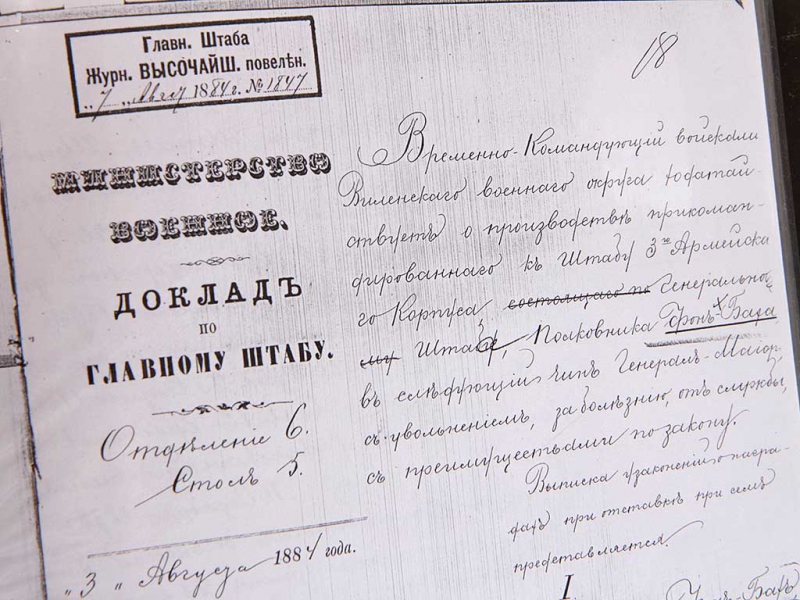 Главн. Штаба
Журн. ВЫСОЧАЙШ. повелѣн.
„7„ Август 1884 г. № 1847
18
МИНИСТЕРСТВО
ВОЕННОЕ.
ДОКЛАДЪ
ПО
ГЛАВНОМУ ШТАБУ.
Отдѣленіе 6.
Столъ 5.
„3„ Августа 1884 года.
Временно-Командующій войсками
Виленскаго военнаго округа ходатай-
ствуетъ о производствѣ прикоман-
дированнаго къ Штабу 3го Армейска
го Корпуса состоящаго по Генерально
му Штаба, Полковника Фонъ-Бада
въ слѣдующій чинъ Генералъ-Маіора
съ увольненіемъ, за болѣзнію, отъ службы,
съ преимуществами по закону.
Выписка узаконеній о награ-
дахъ при отставкѣ при семъ
представляется.
I.